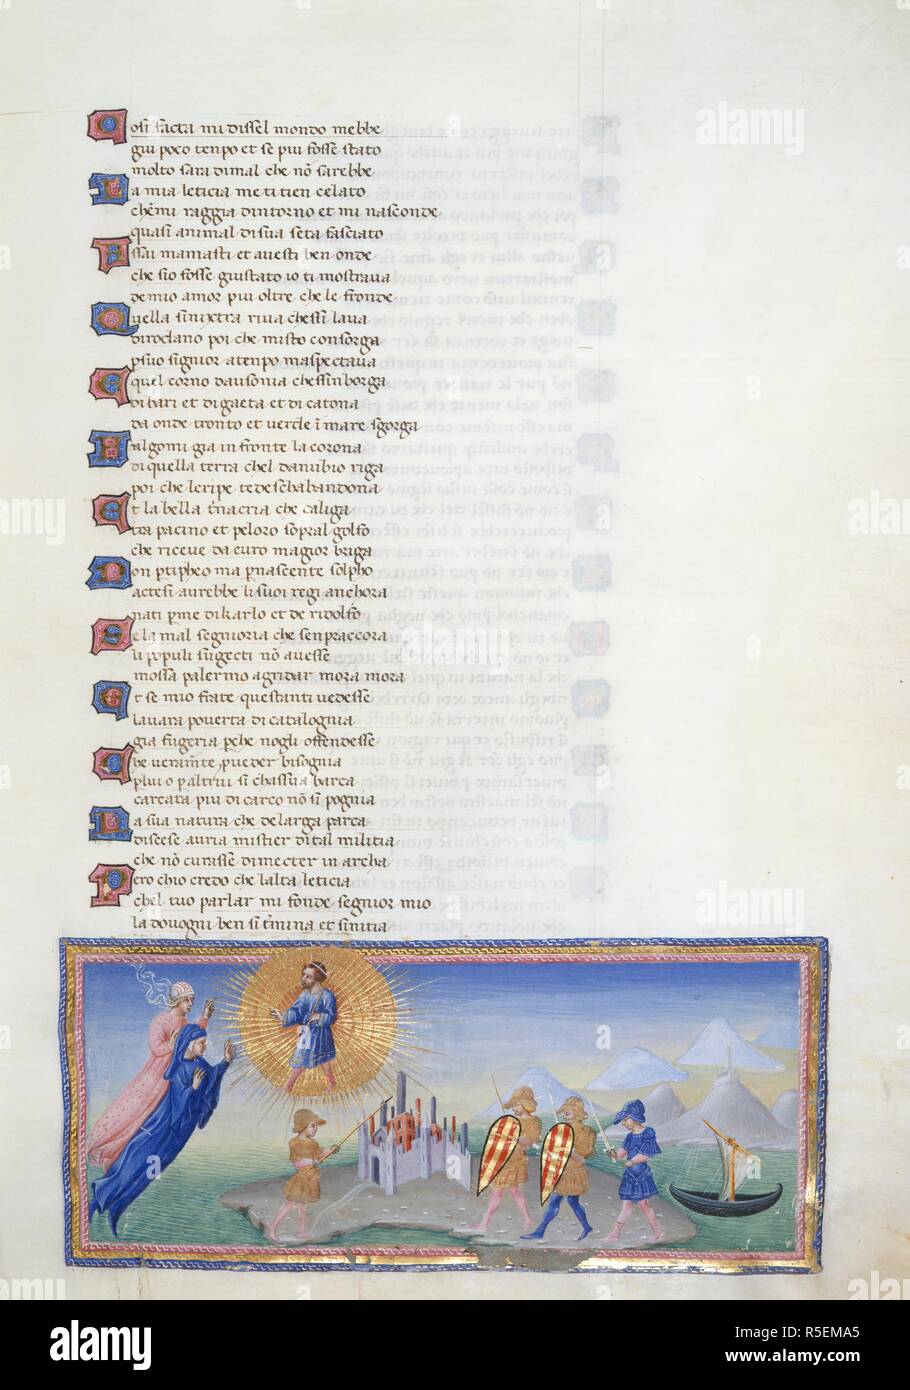 osi facta mi dissel mondo mebbe
giu poco tenpo et se piu fosse stato
molto sara di mal che nō sarebbe
La mia leticia me ti tien celato
chēmi raggia dintorno et mi nasconde
quasi animal di sua seta fasciato
Assai mamasti et avesti ben onde
che sio fosse giu stato io ti mostrava
de mio amor piu oltre che le fronde
Quella sinistra riva chessi lava
di rodano poi che misto con sorga
p suo signior a tenpo maspectava
E quel corno dausonia chessinborga
di bari et di gaeta et di catona
da onde tronto et verde ī mare sgorga
Fulgomi gia in fronte la corona
di quella terra chel danubio riga
poi che le ripe tedesch abandona
Et la bella trinacria che caliga
tra pacino et peloro sopral golfo
che riceve da euro magior briga
Non p tipheo ma p nascente solpho
actesi aurebbe li suoi regi anchora
nati p me di karlo et de ridolfo
Se la mal segnioria che senpraccora
li populi sugecti nō avesse
mossa palermo agridar mora mora
Et se mio frate questanti vedesse
lavara poverta di catalognia
gia fugeria pche nogli offendesse
che veramte pueder bisognia
p lui o paltrui si chassua barca
carcata piu di carco nō si pognia
La sua natura che de larga parca
discese auria mistier di tal militia
che nō curasse di mecter in archa
Pero chio credo che lalta leticia
chel tuo parlar mi fonde segnior mio
la dovogni ben si tmina et sinitia
alamy
alamy
alamy
Image ID: R5EMA5
www.alamy.com